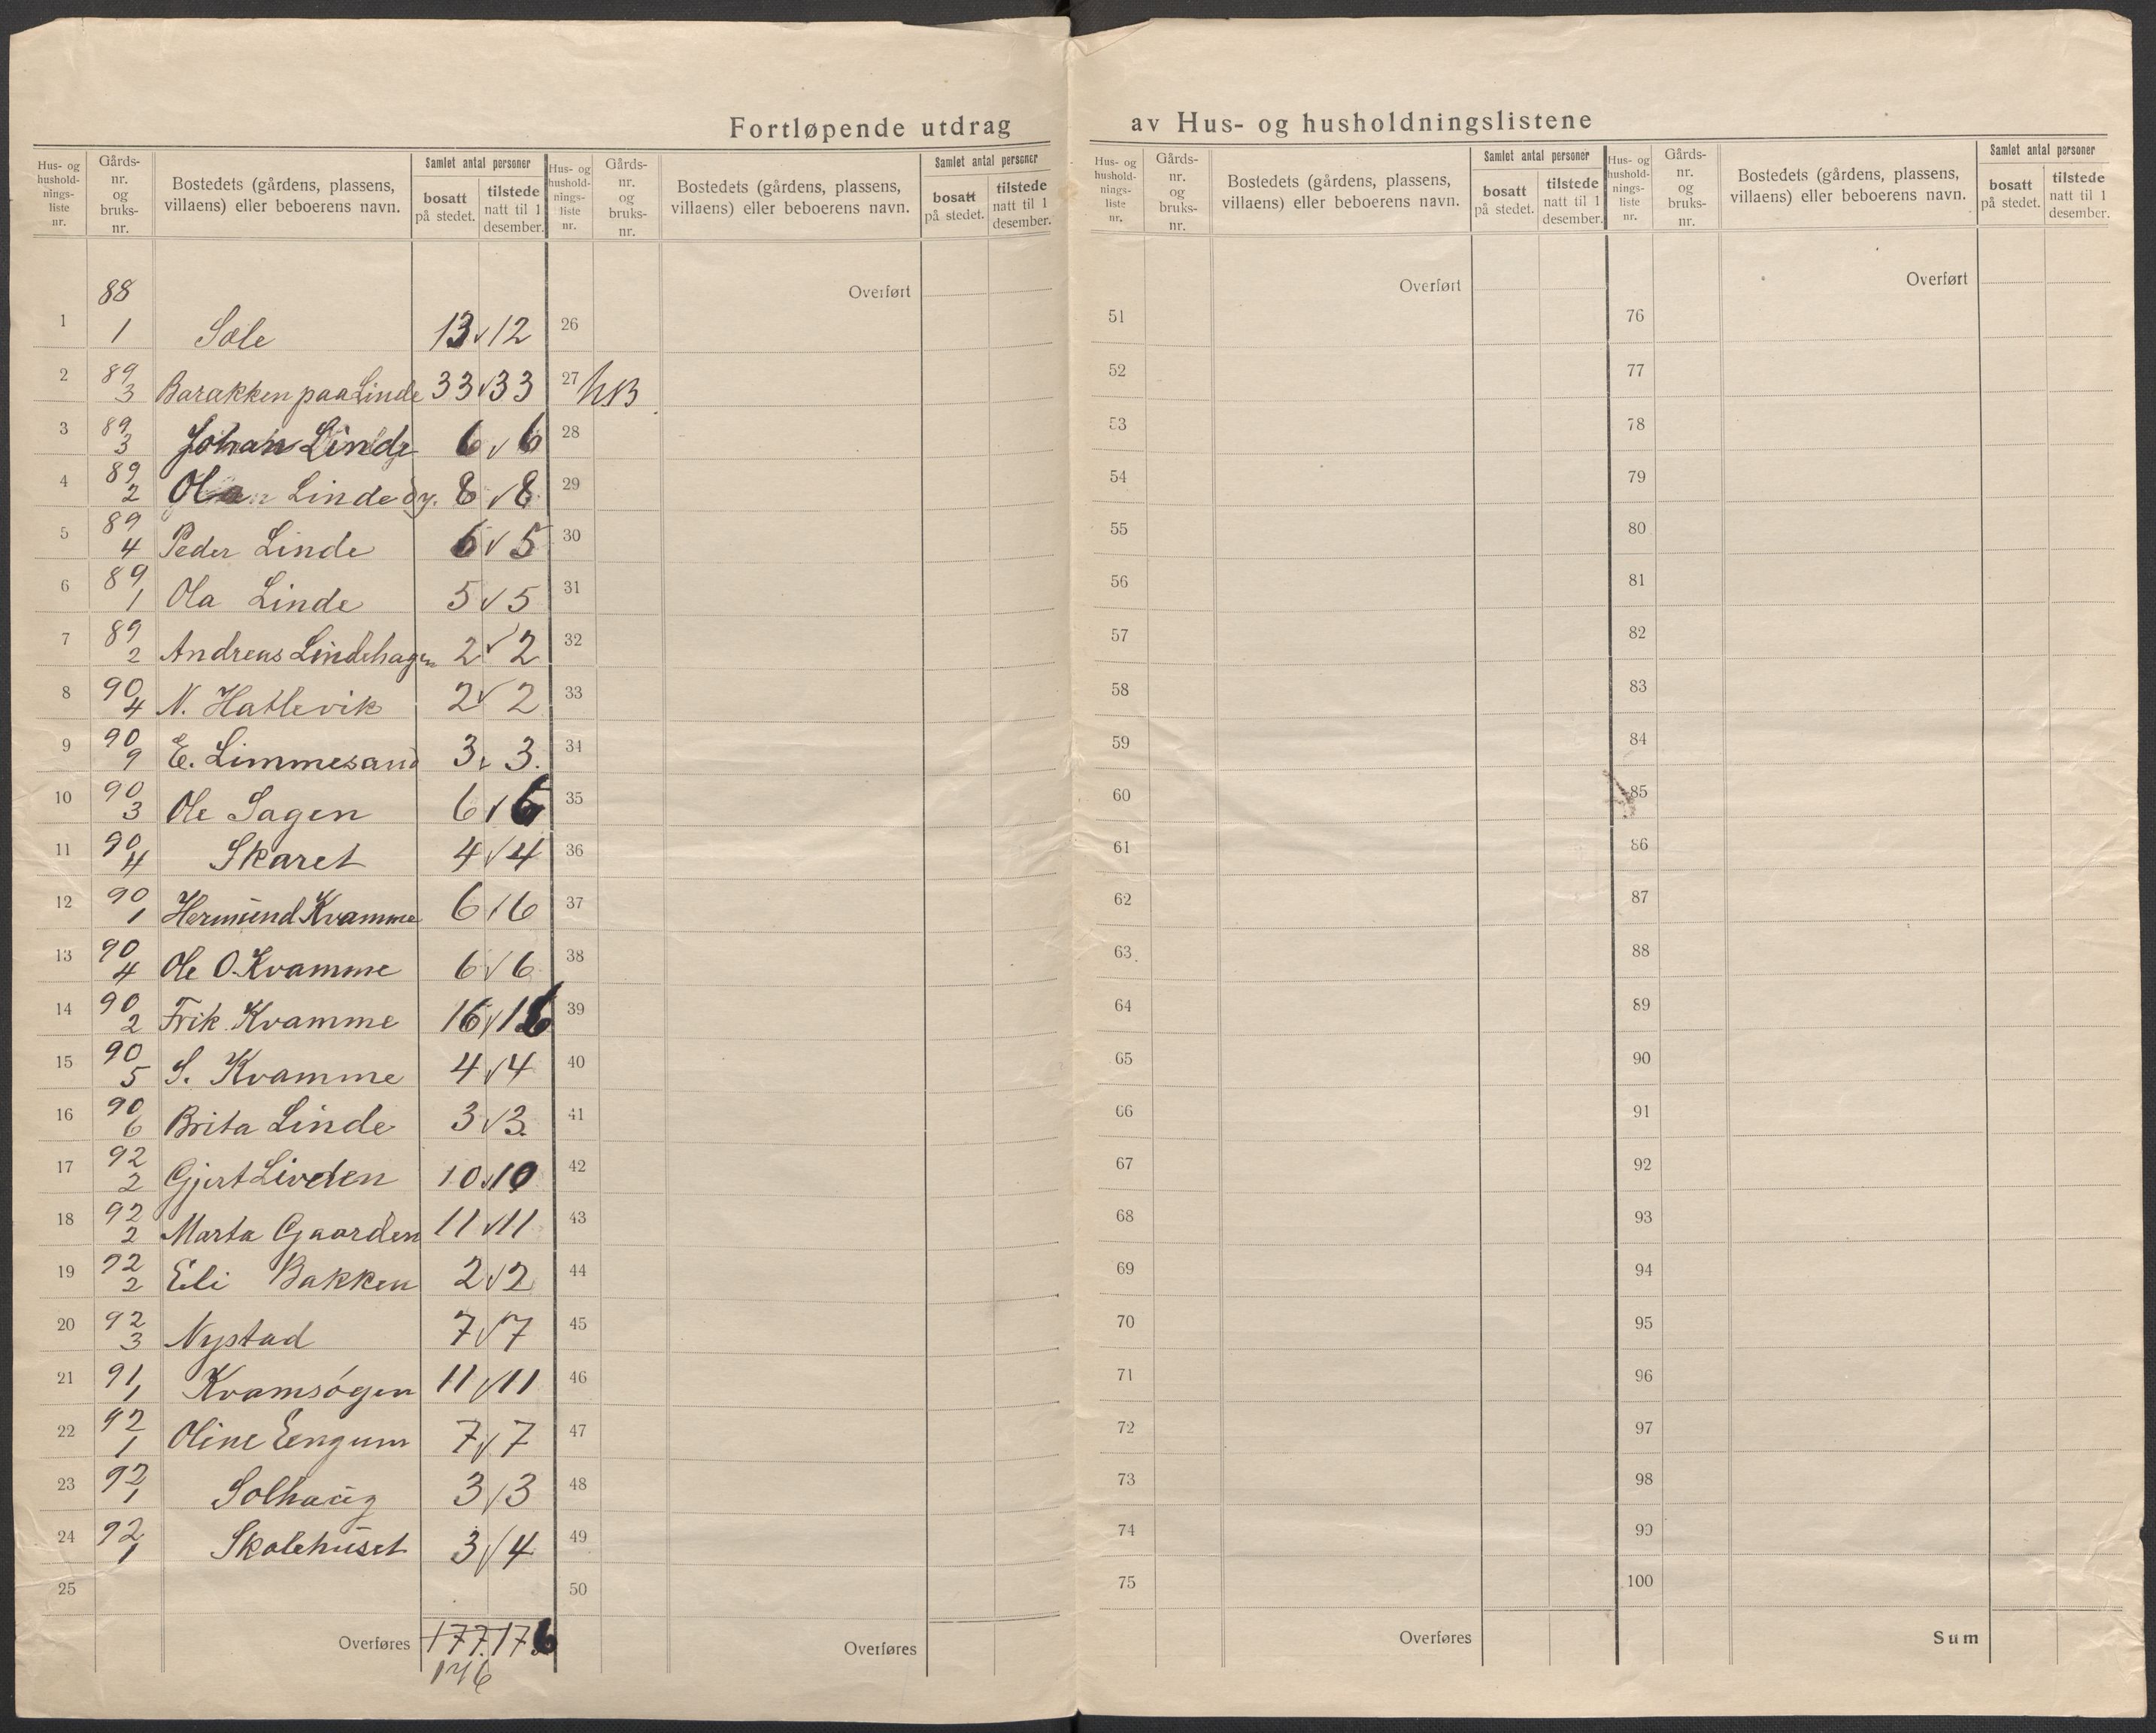 Fortløpende utdrag av Hus- og husholdningslistene
Hus- og hushold- nings- liste nr. | Gårds- nr. og bruks- nr. | Bostedets (gårdens, plassens, villaens) eller beboerens navn. | Samlet antal personer | bosatt på stedet. | tilstede natt til 1 desember.
Hus- og hushold- nings- liste nr. | Gårds- nr. og bruks- nr. | Bostedets (gårdens, plassens, villaens) eller beboerens navn. | Samlet antal personer | bosatt på stedet. | tilstede natt til 1 desember.
Hus- og hushold- nings- liste nr. | Gårds- nr. og bruks- nr. | Bostedets (gårdens, plassens, villaens) eller beboerens navn. | Samlet antal personer | bosatt på stedet. | tilstede natt til 1 desember.
Hus- og hushold- nings- liste nr. | Gårds- nr. og bruks- nr. | Bostedets (gårdens, plassens, villaens) eller beboerens navn. | Samlet antal personer | bosatt på stedet. | tilstede natt til 1 desember.
Overført Overført Overført
1 88 1 Sæle 13 v 12 26 51 76
2 89 3 Barakken paa Linde 33 v 33 27 52 77
3 89 3 Johan Linde 6 v 6 28 53 78
4 89 2 Linde 8 v 8 29 54 79
5 89 4 Peder Linde 6 v 5 30 55 80
6 89 1 Ola Linde 5 v 5 31 56 81
7 89 2 Andreas Lindehagen 2 v 2 32 57 82
8 90 4 N. Hatlevik 2 v 2 33 58 83
9 90 9 E. Limmesand 3 v 3. 34 59 84
10 90 3 Ole Sagen 6 v 6 35 60 85
11 90 4 Skaret 4 v 4 36 61 86
12 90 1 Hermund Kvamme 6 v 6 37 62 87
13 90 4 Ole O. Kvamme 6 v 6 38 63 88
14 90 2 Frik. Kvamme 16 v 16 39 64 89
15 90 5 S. Kvamme 4 v 4 40 65 90
16 90 6 Brita Linde 3 v 3. 41 66 91
17 92 2 Gjert Livden 10 v 10 42 67 92
18 92 2 Marta Gaarden 11 v 11 43 68 93
19 92 2 Eli Bakken 2 v 2 44 69 94
20 92 3 Nystad 7 v 7 45 70 95
21 91 1 Kvamsøgen 11 v 11 46 71 96
22 92 1 Oline Engum 7 v 7 47 72 97
23 92 1 Solhaug 3 v 3 48 73 98
24 92 1 Skolehuset 3 v 4 49 74 99
25 50 75 100
Overføres 177. 176 Overføres Overføres Sum
176